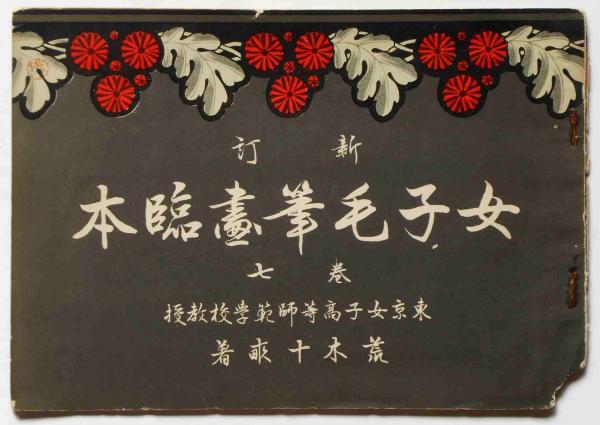 新訂
女子毛筆畫臨本
卷七
東京女子高等師範學校教授
荒木十畝著